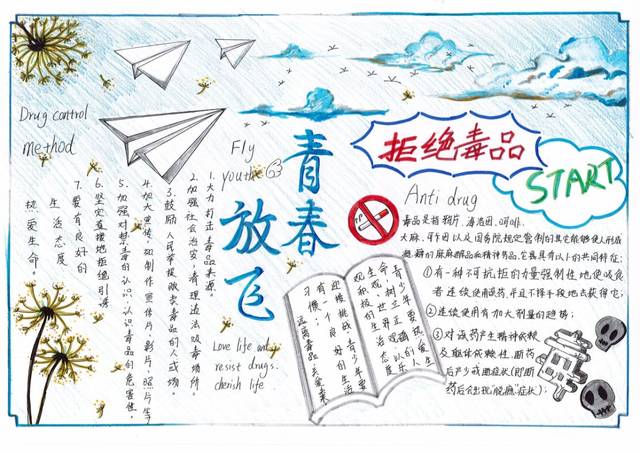 Drug control
method
Fly
youthe
青春
放飞
拒绝毒品
START
Anti drug
毒品是指鸦片、海洛因、吗啡、
大麻、可卡因以及国务院规定管制的其它能够使人形成
瘾癖的麻醉药品和精神药品。它具有以下的共同特征:
①有一种不可抗拒的力量强制性地使吸食
者连续使用该药,并且不择手段地去获得它;
②连续使用有加大剂量的趋势;
③对该药产生精神依赖
及躯体依赖性,断药
后产生戒断症状(即断
药后会出现"脱瘾"症状);
1.大力打击毒品来源。
2.加强社会治安,清理违法吸毒场所。
3.鼓励人民举报贩卖毒品的人或场。
4.加大宣传,如制作宣传片、影片、照片等
5.加强对毒品的认识,认识毒品的危害性。
6.坚定直接地拒绝引诱
7.要有良好的
生活态度
热爱生命。
Love life and
resist drugs.
cherish life
青少年要热爱生
习惯,
远离毒品